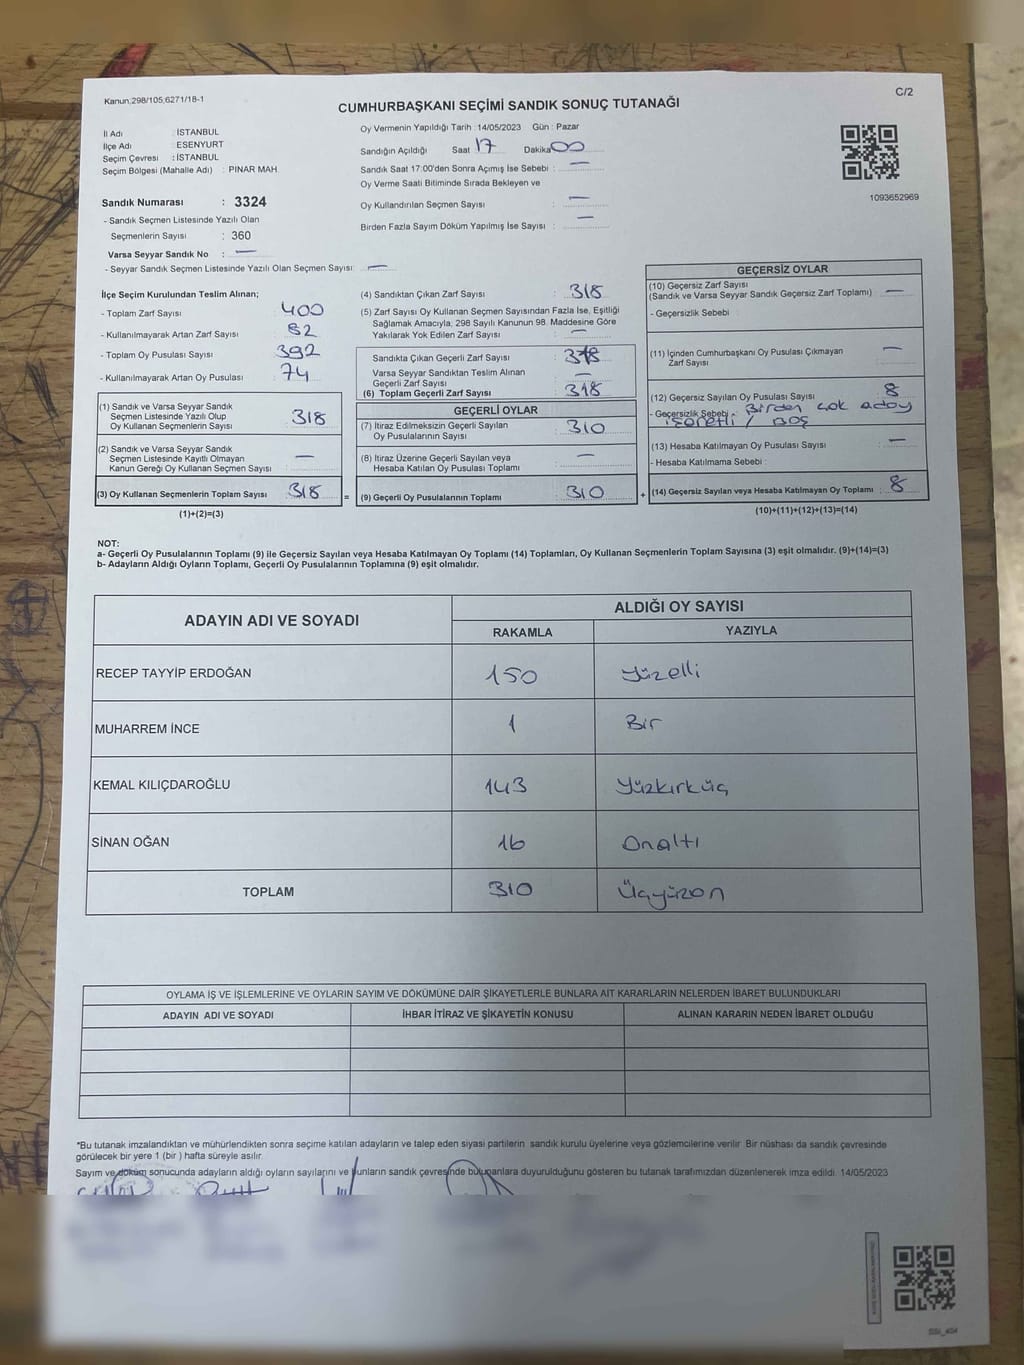 Kanun;298/105,6271/18-1
C/2
CUMHURBAŞKANI SEÇİMİ SANDIK SONUÇ TUTANAĞI
İl Adı : İSTANBUL
İlçe Adı : ESENYURT
Seçim Çevresi : İSTANBUL
Seçim Bölgesi (Mahalle Adı) : PINAR MAH.
Sandık Numarası : 3324
- Sandık Seçmen Listesinde Yazılı Olan
Seçmenlerin Sayısı : 360
Varsa Seyyar Sandık No : —
- Seyyar Sandık Seçmen Listesinde Yazılı Olan Seçmen Sayısı: —
Oy Vermenin Yapıldığı Tarih : 14/05/2023 Gün : Pazar
Sandığın Açıldığı Saat 17 Dakika 00
Sandık Saat 17:00'den Sonra Açımış İse Sebebi : —
Oy Verme Saati Bitiminde Sırada Bekleyen ve
Oy Kullandırılan Seçmen Sayısı : —
Birden Fazla Sayım Döküm Yapılmış İse Sayısı : —
1093652969
İlçe Seçim Kurulundan Teslim Alınan;
- Toplam Zarf Sayısı : 400
- Kullanılmayarak Artan Zarf Sayısı : 82
- Toplam Oy Pusulası Sayısı : 392
- Kullanılmayarak Artan Oy Pusulası : 74
(1) Sandık ve Varsa Seyyar Sandık
Seçmen Listesinde Yazılı Olup
Oy Kullanan Seçmenlerin Sayısı : 318
(2) Sandık ve Varsa Seyyar Sandık
Seçmen Listesinde Kayıtlı Olmayan
Kanun Gereği Oy Kullanan Seçmen Sayısı : —
(3) Oy Kullanan Seçmenlerin Toplam Sayısı : 318
(1)+(2)=(3)
=
(4) Sandıktan Çıkan Zarf Sayısı : 318
(5) Zarf Sayısı Oy Kullanan Seçmen Sayısından Fazla İse, Eşitliği
Sağlamak Amacıyla, 298 Sayılı Kanunun 98. Maddesine Göre
Yakılarak Yok Edilen Zarf Sayısı : —
Sandıkta Çıkan Geçerli Zarf Sayısı : 318
Varsa Seyyar Sandıktan Teslim Alınan
Geçerli Zarf Sayısı : —
(6) Toplam Geçerli Zarf Sayısı : 318
GEÇERLİ OYLAR
(7) İtiraz Edilmeksizin Geçerli Sayılan
Oy Pusulalarının Sayısı : 310
(8) İtiraz Üzerine Geçerli Sayılan veya
Hesaba Katılan Oy Pusulası Toplamı : —
(9) Geçerli Oy Pusulalarının Toplamı : 310
+
GEÇERSİZ OYLAR
(10) Geçersiz Zarf Sayısı
(Sandık ve Varsa Seyyar Sandık Geçersiz Zarf Toplamı) : —
- Geçersizlik Sebebi :
(11) İçinden Cumhurbaşkanı Oy Pusulası Çıkmayan
Zarf Sayısı : —
(12) Geçersiz Sayılan Oy Pusulası Sayısı : 8
- Geçersizlik Sebebi - Birden çok aday
işaretli / Boş
(13) Hesaba Katılmayan Oy Pusulası Sayısı : —
- Hesaba Katılmama Sebebi :
(14) Geçersiz Sayılan veya Hesaba Katılmayan Oy Toplamı : 8
(10)+(11)+(12)+(13)=(14)
NOT:
a- Geçerli Oy Pusulalarının Toplamı (9) ile Geçersiz Sayılan veya Hesaba Katılmayan Oy Toplamı (14) Toplamları, Oy Kullanan Seçmenlerin Toplam Sayısına (3) eşit olmalıdır. (9)+(14)=(3)
b- Adayların Aldığı Oyların Toplamı, Geçerli Oy Pusulalarının Toplamına (9) eşit olmalıdır.
ADAYIN ADI VE SOYADI
ALDIĞI OY SAYISI
RAKAMLA YAZIYLA
RECEP TAYYİP ERDOĞAN 150 Yüzelli
MUHARREM İNCE 1 Bir
KEMAL KILIÇDAROĞLU 143 Yüzkırküç
SİNAN OĞAN 16 Onaltı
TOPLAM 310 Üçyüzon
OYLAMA İŞ VE İŞLEMLERİNE VE OYLARIN SAYIM VE DÖKÜMÜNE DAİR ŞİKAYETLERLE BUNLARA AİT KARARLARIN NELERDEN İBARET BULUNDUKLARI
ADAYIN ADI VE SOYADI İHBAR İTİRAZ VE ŞİKAYETİN KONUSU ALINAN KARARIN NEDEN İBARET OLDUĞU
*Bu tutanak imzalandıktan ve mühürlendikten sonra seçime katılan adayların ve talep eden siyasi partilerin sandık kurulu üyelerine veya gözlemcilerine verilir. Bir nüshası da sandık çevresinde
görülecek bir yere 1 (bir ) hafta süreyle asılır.
Sayım ve döküm sonucunda adayların aldığı oyların sayılarını ve bunların sandık çevresinde bulunanlara duyurulduğunu gösteren bu tutanak tarafımızdan düzenlenerek imza edildi. 14/05/2023